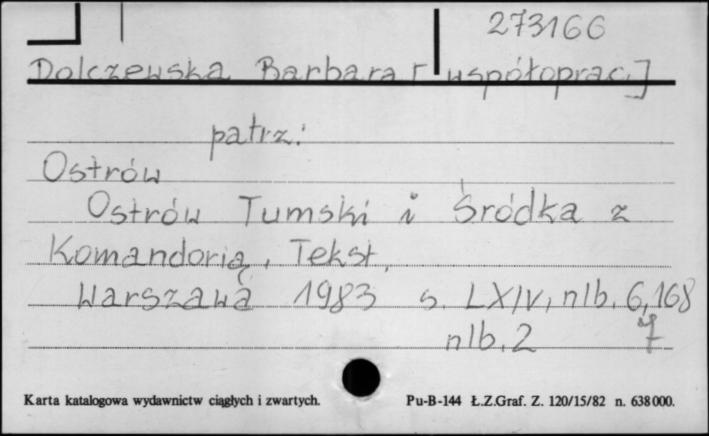 273166
Dolczewska Barbara [współoprac.]
patrz:
Ostrów
Ostrów Tumski i Śródka z
Komandorią, Tekst,
Warszawa 1983 s. LXIV, nlb. 6, 168
nlb. 2 7
Karta katalogowa wydawnictw ciągłych i zwartych. Pu-B-144 Ł.Z.Graf. Z. 120/15/82 n. 638 000.